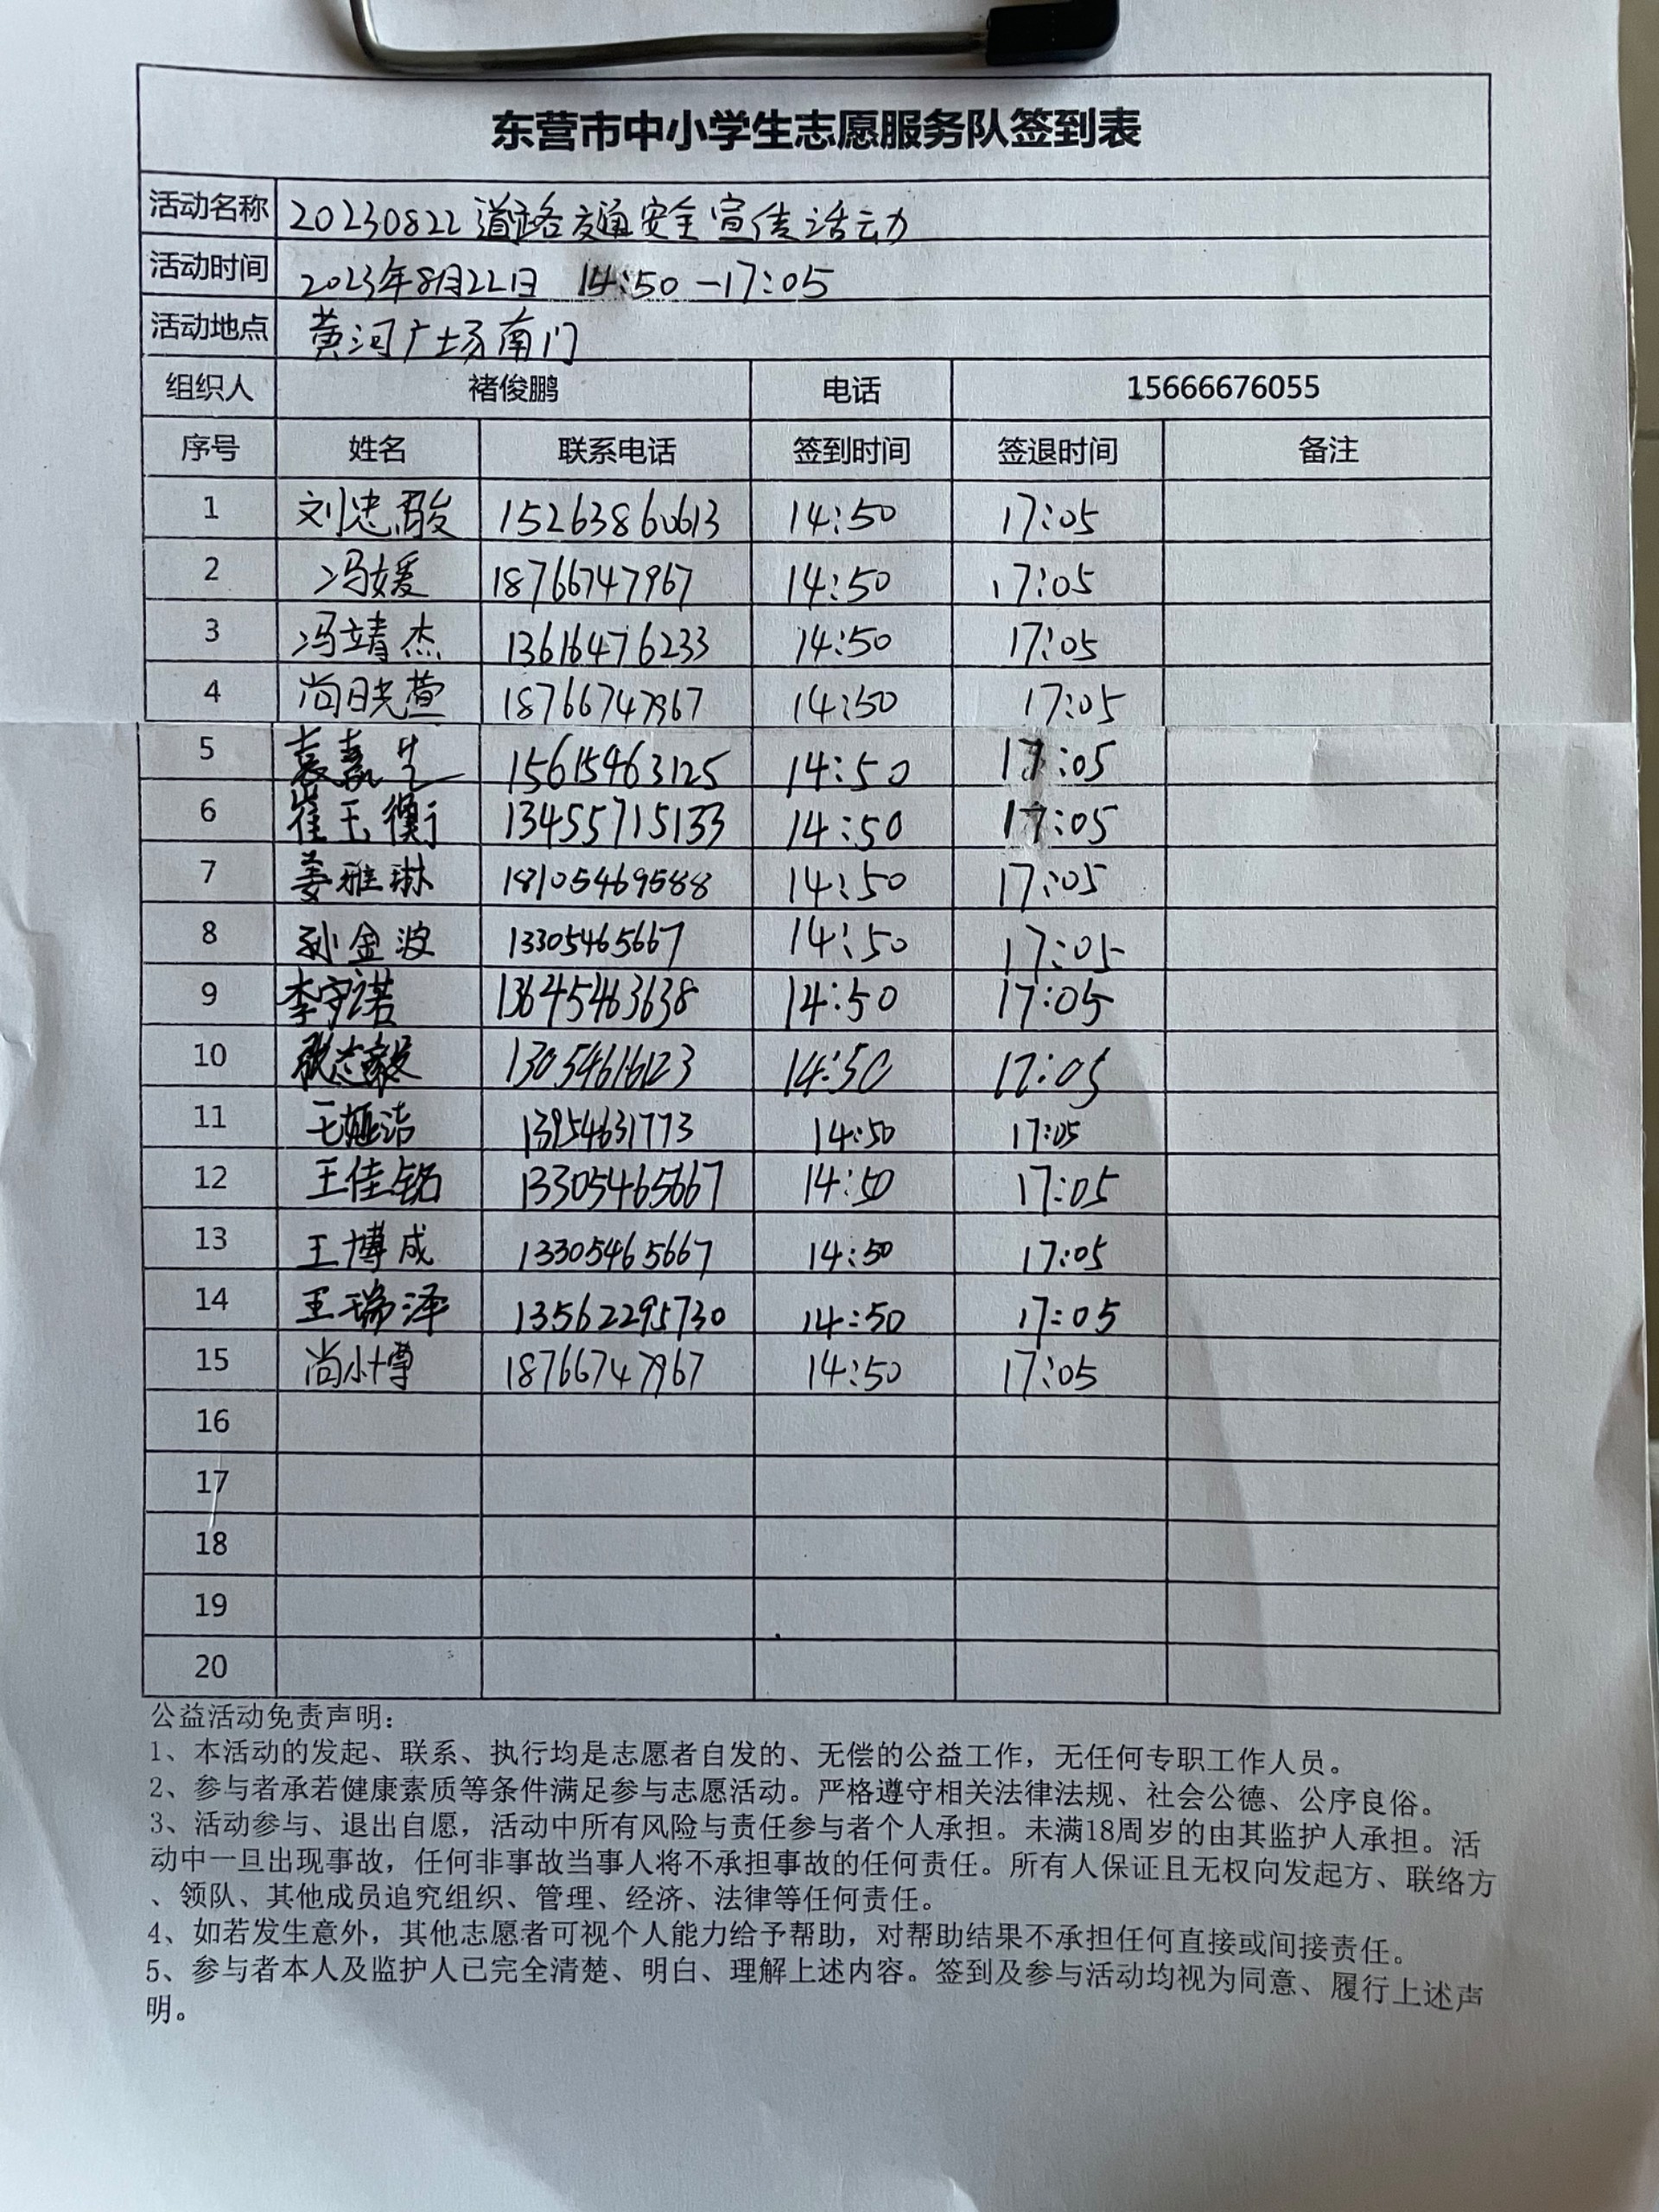 东营市中小学生志愿服务队签到表
活动名称 20230822道路交通安全宣传活动
活动时间 2023年8月22日 14:50-17:05
活动地点 黄河广场南门
组织人 褚俊鹏 电话 15666676055
序号 姓名 联系电话 签到时间 签退时间 备注
1 刘忠骏 15263860613 14:50 17:05
2 冯媛 18766747967 14:50 17:05
3 冯靖杰 13616476233 14:50 17:05
4 尚晓萱 18766747967 14:50 17:05
5 袁嘉 15615463125 14:50 17:05
6 崔玉衡 13455715133 14:50 17:05
7 姜雅琳 18105469588 14:50 17:05
8 孙金波 13305465667 14:50 17:05
9 李宇诺 13645463638 14:50 17:05
10 张志毅 13054616123 14:50 17:05
11 王洁 13954631773 14:50 17:05
12 王佳铭 13305465667 14:50 17:05
13 王博成 13305465667 14:50 17:05
14 王瑞泽 13562295730 14:50 17:05
15 尚小博 18766747967 14:50 17:05
16
17
18
19
20
公益活动免责声明：
1、本活动的发起、联系、执行均是志愿者自发的、无偿的公益工作，无任何专职工作人员。
2、参与者承若健康素质等条件满足参与志愿活动。严格遵守相关法律法规、社会公德、公序良俗。
3、活动参与、退出自愿，活动中所有风险与责任参与者个人承担。未满18周岁的由其监护人承担。活
动中一旦出现事故，任何非事故当事人将不承担事故的任何责任。所有人保证且无权向发起方、联络方
、领队、其他成员追究组织、管理、经济、法律等任何责任。
4、如若发生意外，其他志愿者可视个人能力给予帮助，对帮助结果不承担任何直接或间接责任。
5、参与者本人及监护人已完全清楚、明白、理解上述内容。签到及参与活动均视为同意、履行上述声
明。